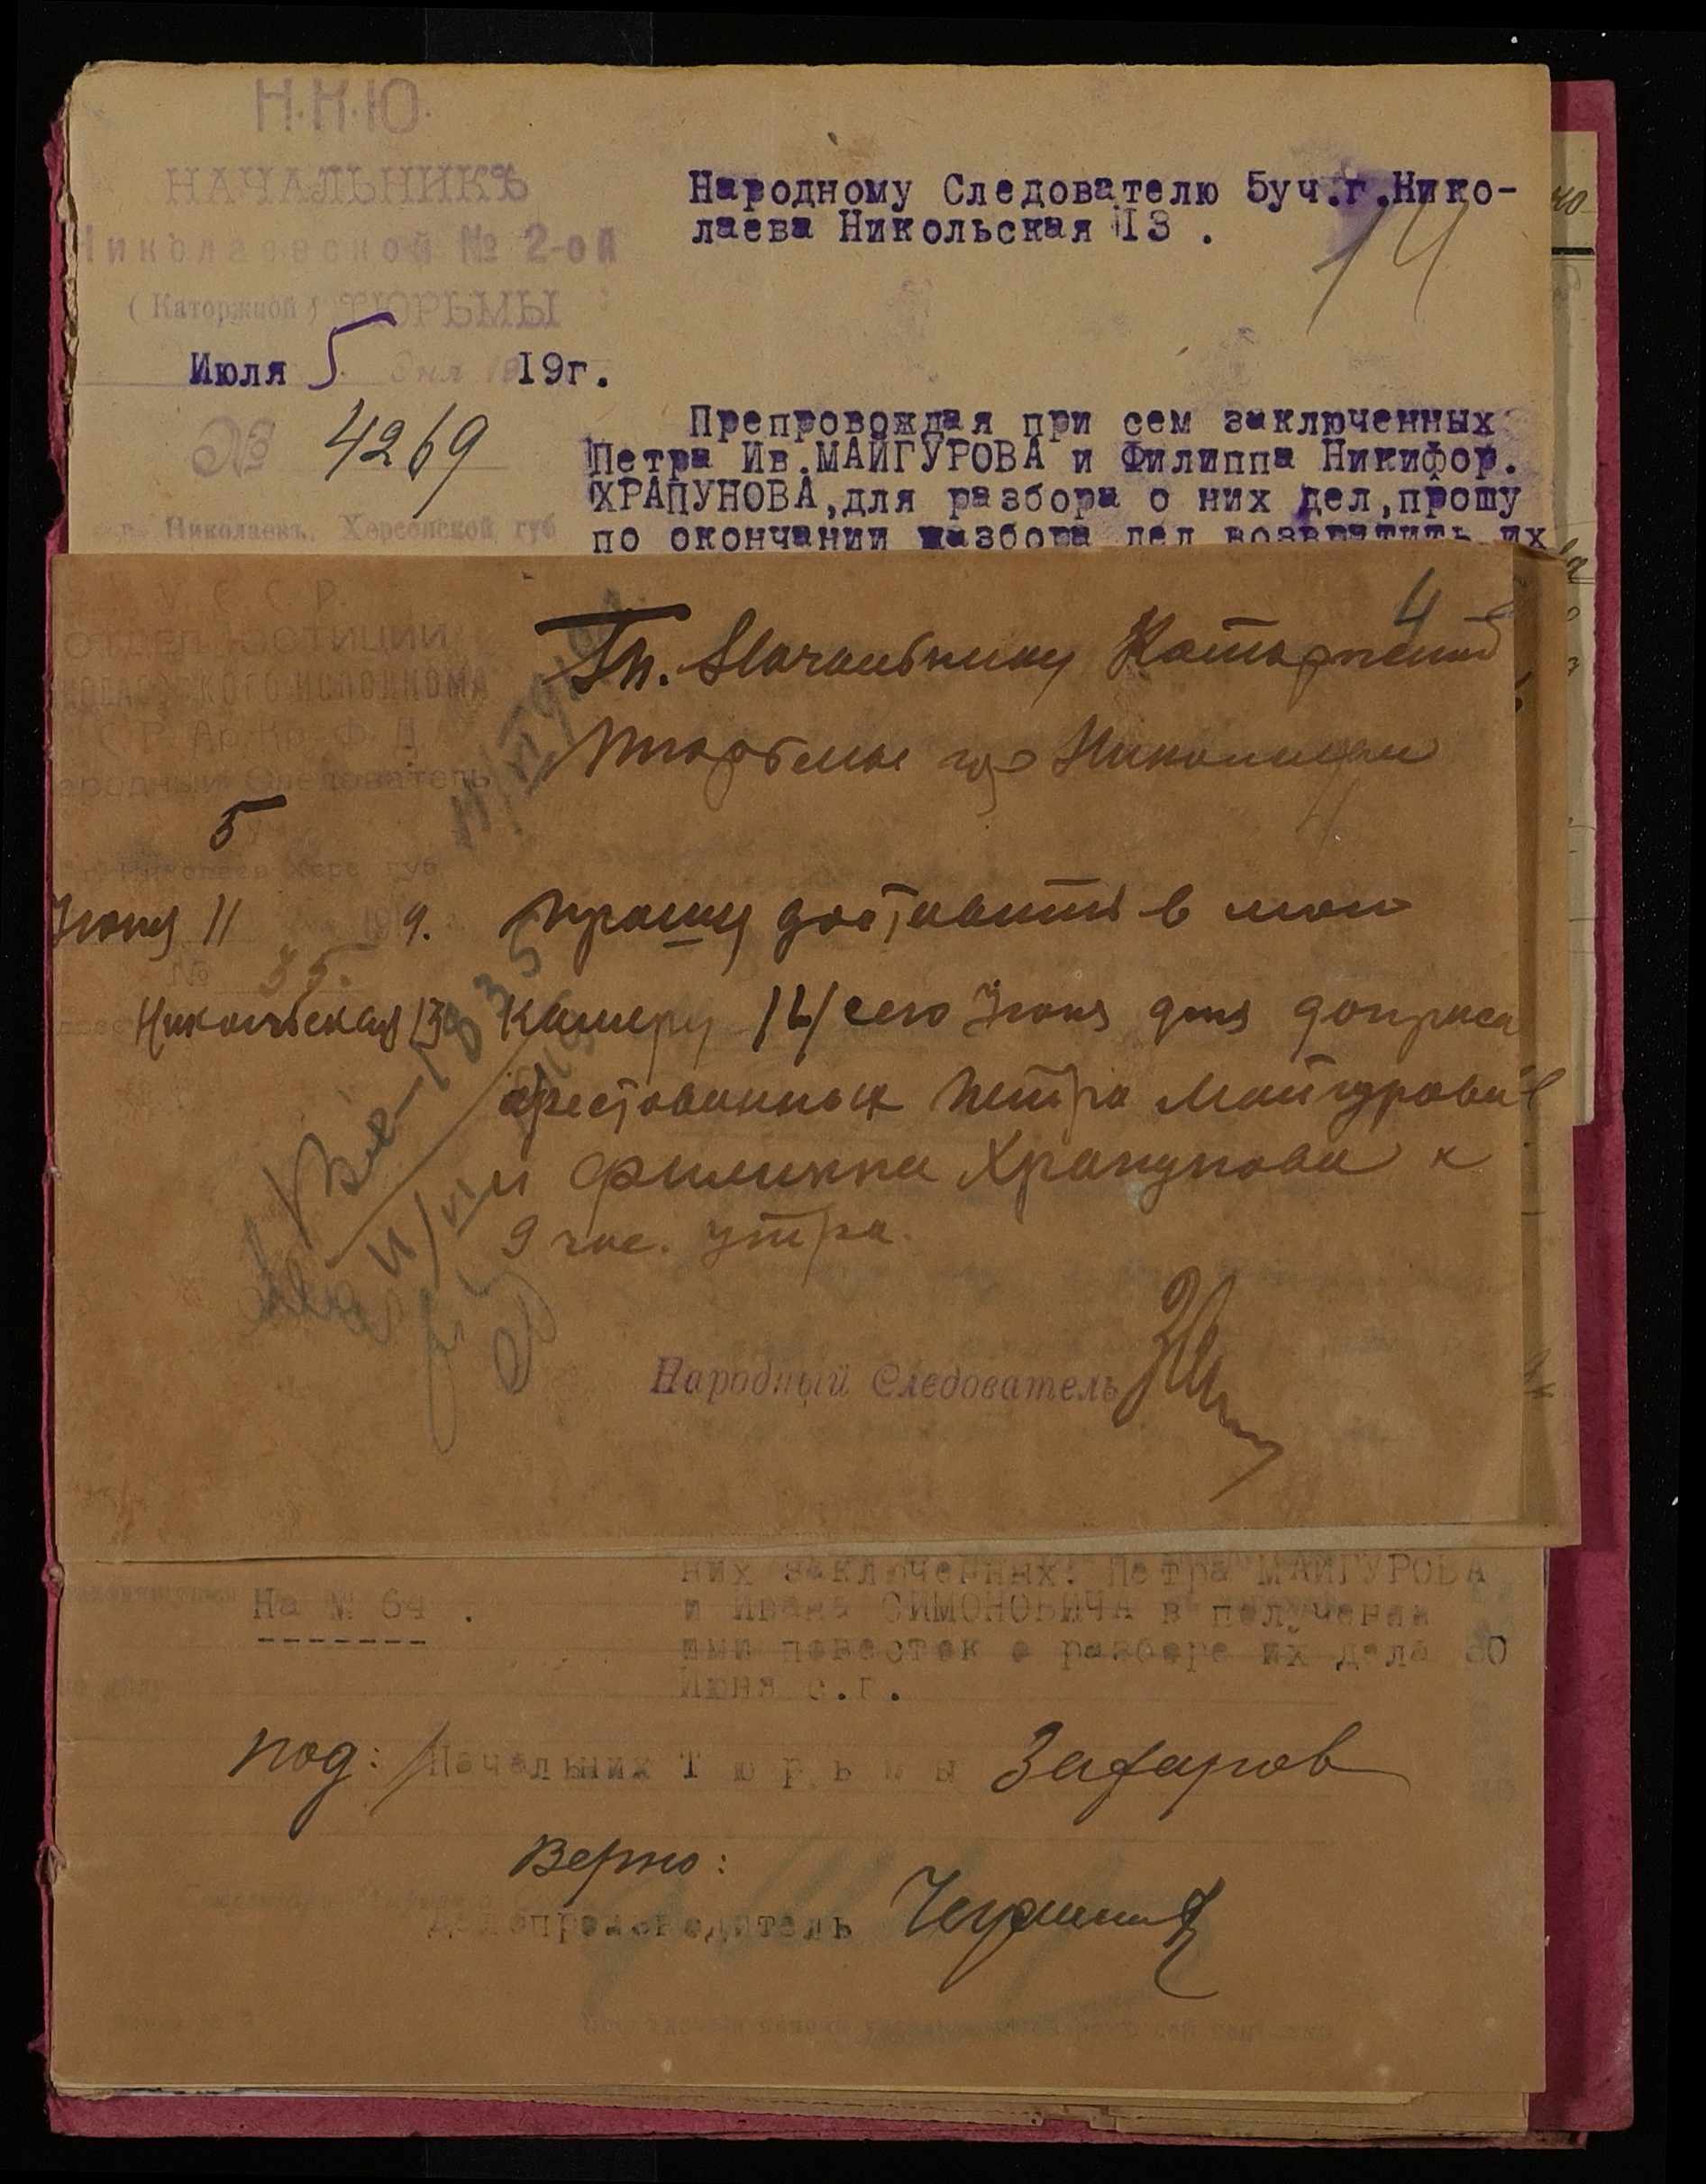 Н.К.Ю.
НАЧАЛЬНИКЪ
Николаевской № 2-ой
(Каторжной) ТЮРЬМЫ
Июля 5 дня 19г.
№ 4269
г. Николаевъ, Херсонской губ
Народному Следователю 5уч.г.Нико-
лаева Никольская 13 .
14
Препровождая при сем заключенных
Петра Ив.МАЙГУРОВА и Филиппа Никифор.
ХРАПУНОВА,для разбора о них дел,прошу
по окончании разбора дел возвратить их
У. С. С. Р.
ОТДЕЛ ЮСТИЦИИ
ИСПОЛКОМА
С. Р. Ар. Кр. Ф. Д.
Народный Следователь
5
г. Николаев Херс губ
Июня 11 1919.
№ 35.
Никольская 13
4
Гр. Начальнику Каторжной
тюрьмы гор Николаева
Прошу доставить в мою
камеру 14/ сего Июня для допроса
арестованных Петра Майгурова
и Филиппа Храпунова к
9 час. утра.
Народный Следователь
На № 64 .
них заключенных: Петра МАЙГУРОВА
и Ивана СИМОНОВИЧА в получении
ими повесток о разборе их дела 30
Июня с.г.
под: Начальник Тюрьмы Захаров
Верно:
Делопроизводитель